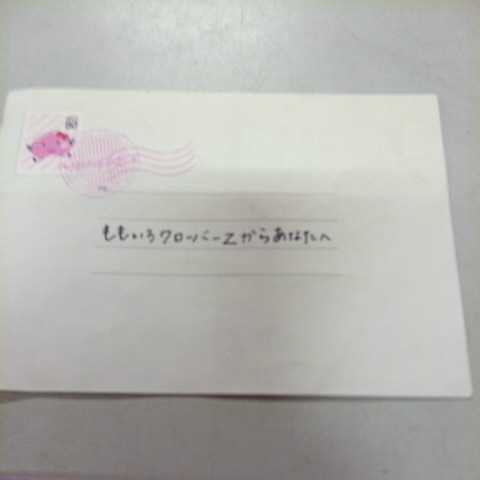 ももいろクローバーZからあなたへ